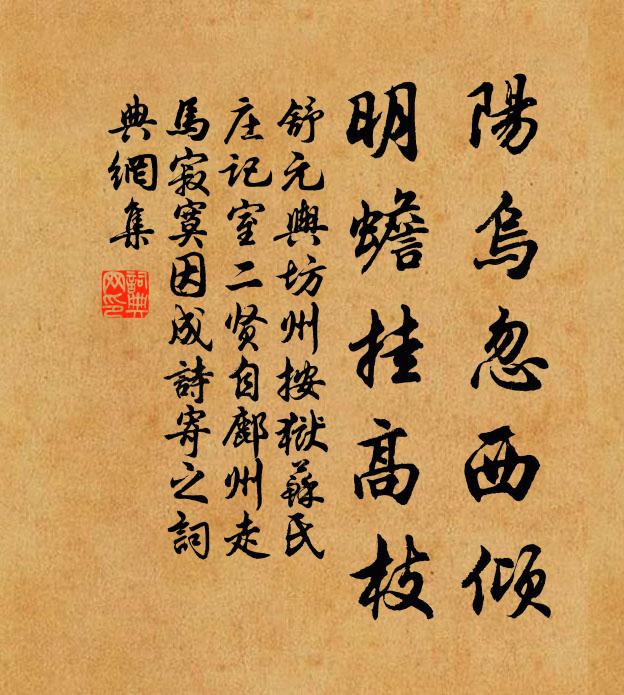 陽烏忽西傾
明蟾挂高枝
舒元輿坊州按獄蘇氏
庄记室二贤自鄜州走
馬寂寞因成詩寄之詞
典網集
詞典网印